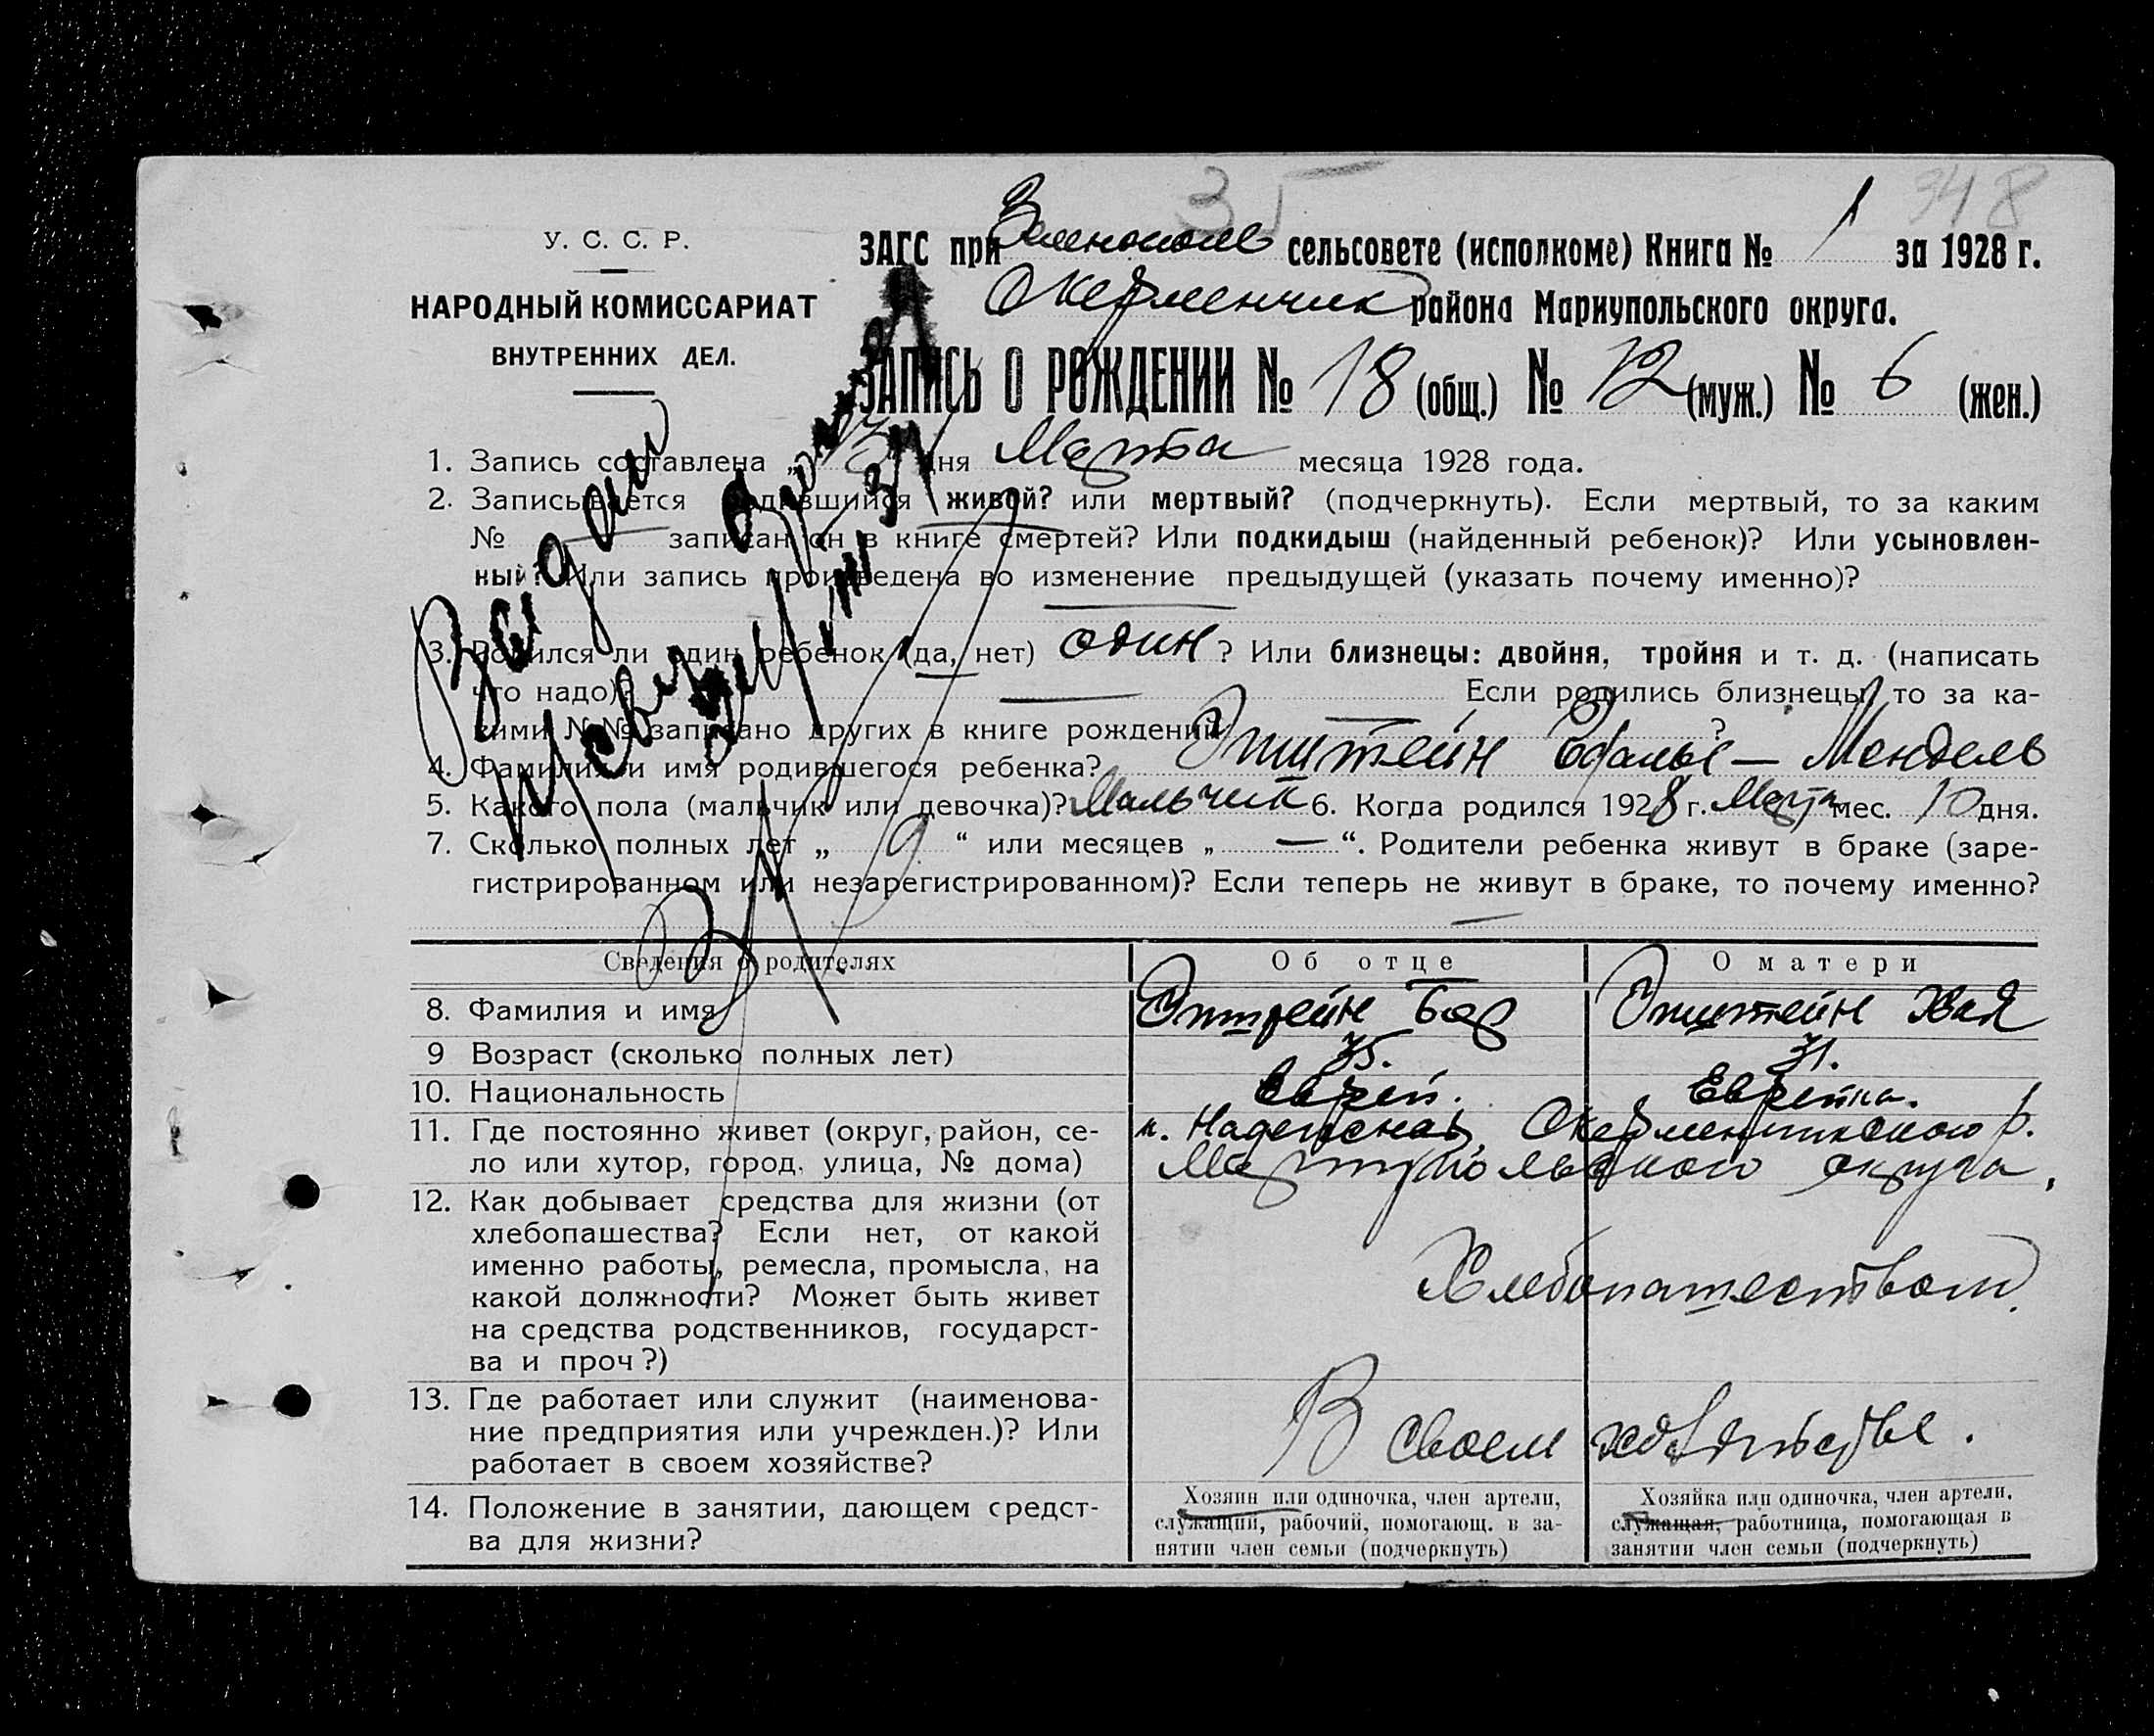 35
348
У. С. С. Р.
НАРОДНЫЙ КОМИССАРИАТ
ВНУТРЕННИХ ДЕЛ.
ЗАГС при Зеленополь сельсовете (исполкоме) Книга № 1 за 1928 г.
Окерменчик района Мариупольского округа.
ЗАПИСЬ О РОЖДЕНИИ № 18 (общ.) № 12 (муж.) № 6 (жен.)
1. Запись составлена „13“ дня Марта месяца 1928 года.
2. Записывается родившийся живой? или мертвый? (подчеркнуть). Если мертвый, то за каким
№ — записан он в книге смертей? Или подкидыш (найденный ребенок)? Или усыновлен-
ный? Или запись произведена во изменение предыдущей (указать почему именно)?
—
3. Родился ли один ребенок (да, нет) один? Или близнецы: двойня, тройня и т. д. (написать
что надо)? — Если родились близнецы, то за ка-
кими №№ записано других в книге рождений — ?
4. Фамилия и имя родившегося ребенка? Эпштейн — Мендель
5. Какого пола (мальчик или девочка)? Мальчик 6. Когда родился 1928 г. Март мес. 10 дня.
7. Сколько полных лет „ 9 “ или месяцев „ — “. Родители ребенка живут в браке (заре-
гистрированном или незарегистрированном)? Если теперь не живут в браке, то почему именно?
—
Выдан
Сведения о родителях Об отце О матери
8. Фамилия и имя Эпштейн Бер Эпштейн Хая
9 Возраст (сколько полных лет) 35. 31.
10. Национальность Еврей. Еврейка.
11. Где постоянно живет (округ, район, се- к. Надежная, Окерменчикского р.
ло или хутор, город. улица, № дома) Мариупольского округа.
12. Как добывает средства для жизни (от
хлебопашества? Если нет, от какой
именно работы, ремесла, промысла, на Хлебопашеством.
какой должности? Может быть живет
на средства родственников, государст-
ва и проч?)
13. Где работает или служит (наименова-
ние предприятия или учрежден.)? Или В своем хозяйстве.
работает в своем хозяйстве?
14. Положение в занятии, дающем средст-
ва для жизни?
Хозяин или одиночка, член артели,
служащий, рабочий, помогающ. в за-
нятии член семьи (подчеркнуть)
Хозяйка или одиночка, член артели,
служащая, работница, помогающая в
занятии член семьи (подчеркнуть)